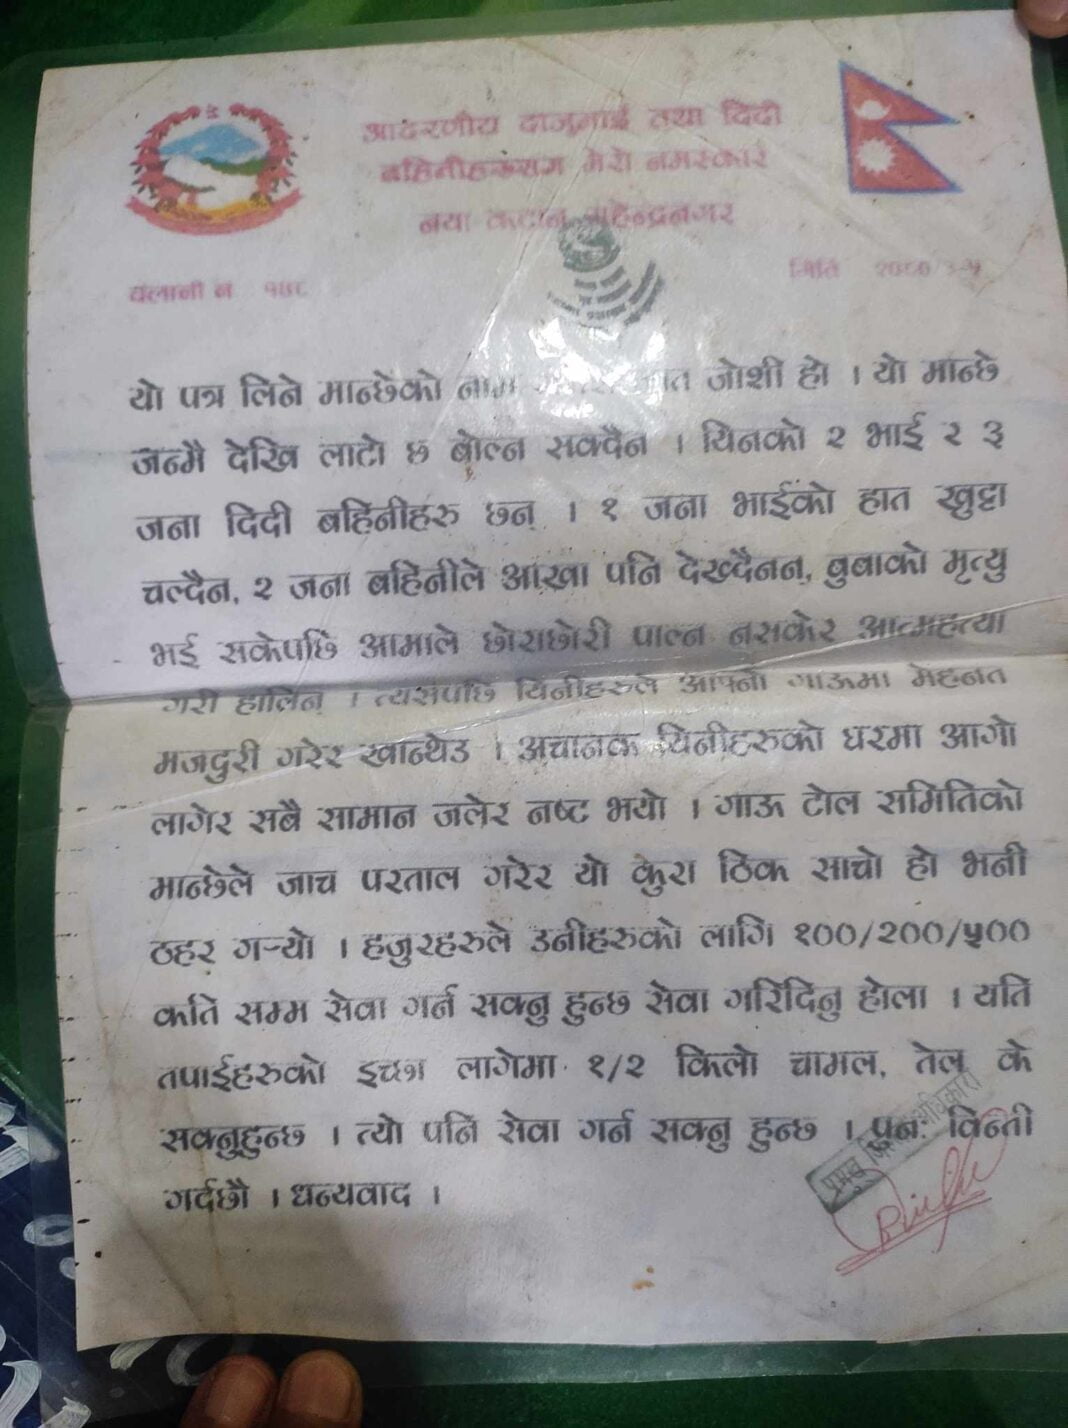 आदरणीय दाजुभाई तथा दिदी
बहिनीहरुसंग मेरो नमस्कार
नया कटान महेन्द्रनगर
चलानी न १७८
मिति २०८०
यो पत्र लिने मान्छेको नाम जोशी हो । यो मान्छे
जन्मै देखि लाटो छ बोल्न सक्दैन । यिनको २ भाई र ३
जना दिदी बहिनीहरु छन् । १ जना भाईको हात खुट्टा
चल्दैन, २ जना बहिनीले आंखा पनि देख्दैनन्, बुबाको मृत्यु
भई सकेपछि आमाले छोराछोरी पाल्न नसकेर आत्महत्या
गरी हालिन् । त्यसपछि यिनीहरुले आफ्नो गाऊमा मेहनत
मजदुरी गरेर खान्थेउ । अचानक यिनीहरुको घरमा आगो
लागेर सबै सामान जलेर नष्ट भयो । गाऊ टोल समितिको
मान्छेले जाच परताल गरेर यो कुरा ठिक साचो हो भनी
ठहर् गर्‍यो । हजुरहरुले उनीहरुको लागि १००/२००/५००
कति सम्म सेवा गर्न सक्नु हुन्छ सेवा गरिदिनु होला । यति
तपाईहरुको इच्छा लागेमा १/२ किलो चामल, तेल के
सक्नुहुन्छ । त्यो पनि सेवा गर्न सक्नु हुन्छ । पुनः विन्ती
गर्दछौ । धन्यवाद ।